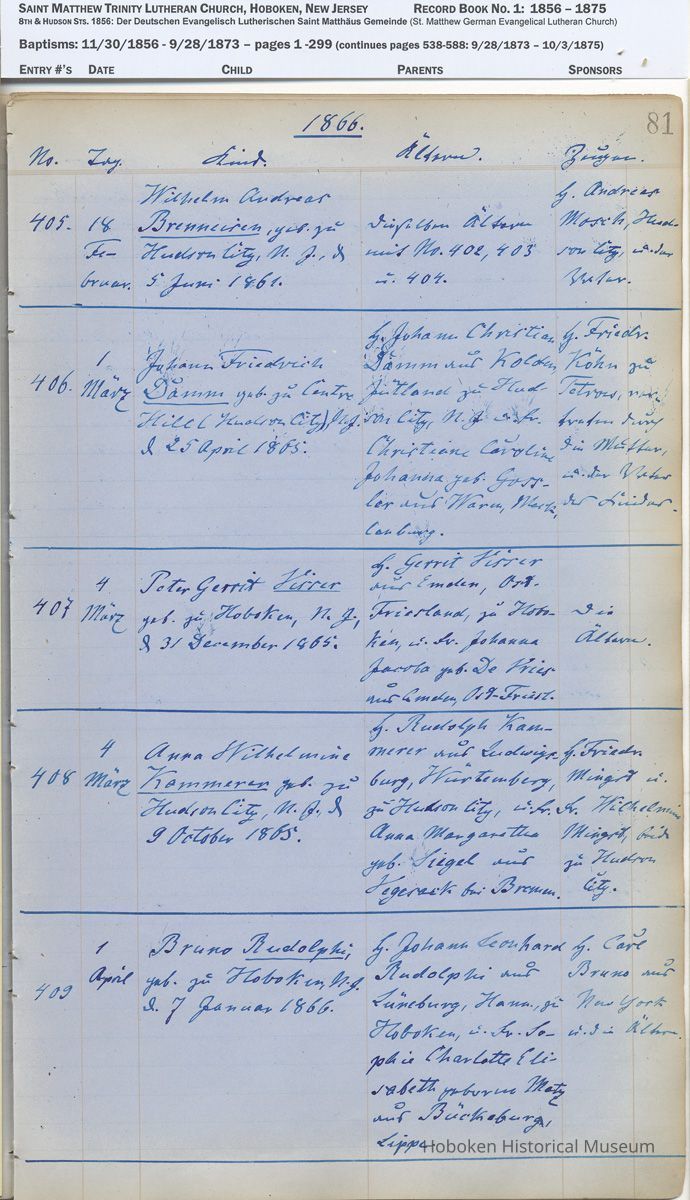 SAINT MATTHEW TRINITY LUTHERAN CHURCH, HOBOKEN, NEW JERSEY RECORD BOOK NO. 1: 1856 – 1875
8TH & HUDSON STS. 1856: Der Deutschen Evangelisch Lutherischen Saint Matthäus Gemeinde (St. Matthew German Evangelical Lutheran Church)
Baptisms: 11/30/1856 - 9/28/1873 – pages 1 -299 (continues pages 538-588: 9/28/1873 – 10/3/1875)
ENTRY #'S DATE CHILD PARENTS SPONSORS
1866. 81
No. Tag. Kind. Ältern. Zeugen.
405.
18
Fe-
bruar.
Wilhelm Andreas
Brenneisen, geb. zu
Hudson City, N. J., d.
5 Juni 1861.
Dieselben Ältern
mit No. 402, 403
u. 404.
H. Andreas
Mosch, Hud-
son City, u. der
Vater.
406.
1
März
Johann Friedrich
Damm geb. zu Centre
Hill (Hudson City), N.J.
d. 25 April 1865.
H. Johann Christian
Damm aus Kolden
Jutland zu Hud
son City, N. J. u. Fr.
Christiane Caroline
Johanna geb. Goss-
ler aus Waren, Meck-
lenburg.
H. Friedr.
Köhn zu
Tetrow, ver-
treten durch
die Mutter,
u. der Vater
des Kindes.
407
4
März
Peter Gerrit Visser
geb. zu Hoboken, N. J.,
d. 31 December 1865.
H. Gerrit Visser
aus Emden, Ost-
Friesland, zu Hobo-
ken, u. Fr. Johanna
Jacoba geb. De Vries
aus Emden, Ost-Friesl.
Die
Ältern.
408
4
März
Anna Wilhelmine
Kammerer geb. zu
Hudson City, N. J. d.
9 October 1865.
H. Rudolph Kam-
merer aus Ludwigs-
burg, Würtemberg,
zu Hudson City, u. Fr.
Anna Margaretha
geb. Siegel aus
Vegesack bei Bremen.
H. Friedr.
Mingst u.
Fr. Wilhelmine
Mingst, beide
zu Hudson
City.
409
1
April
Bruno Rudolphi,
geb. zu Hoboken, N. J.
d. 7 Januar 1866.
H. Johann Leonhard
Rudolphi aus
Lüneburg, Hann., zu
Hoboken, u. Fr. So-
phie Charlotte Eli-
sabeth geboren Metz
aus Bückeburg,
Lippe
H. Carl
Bruno aus
New York
u. die Ältern.
Hoboken Historical Museum